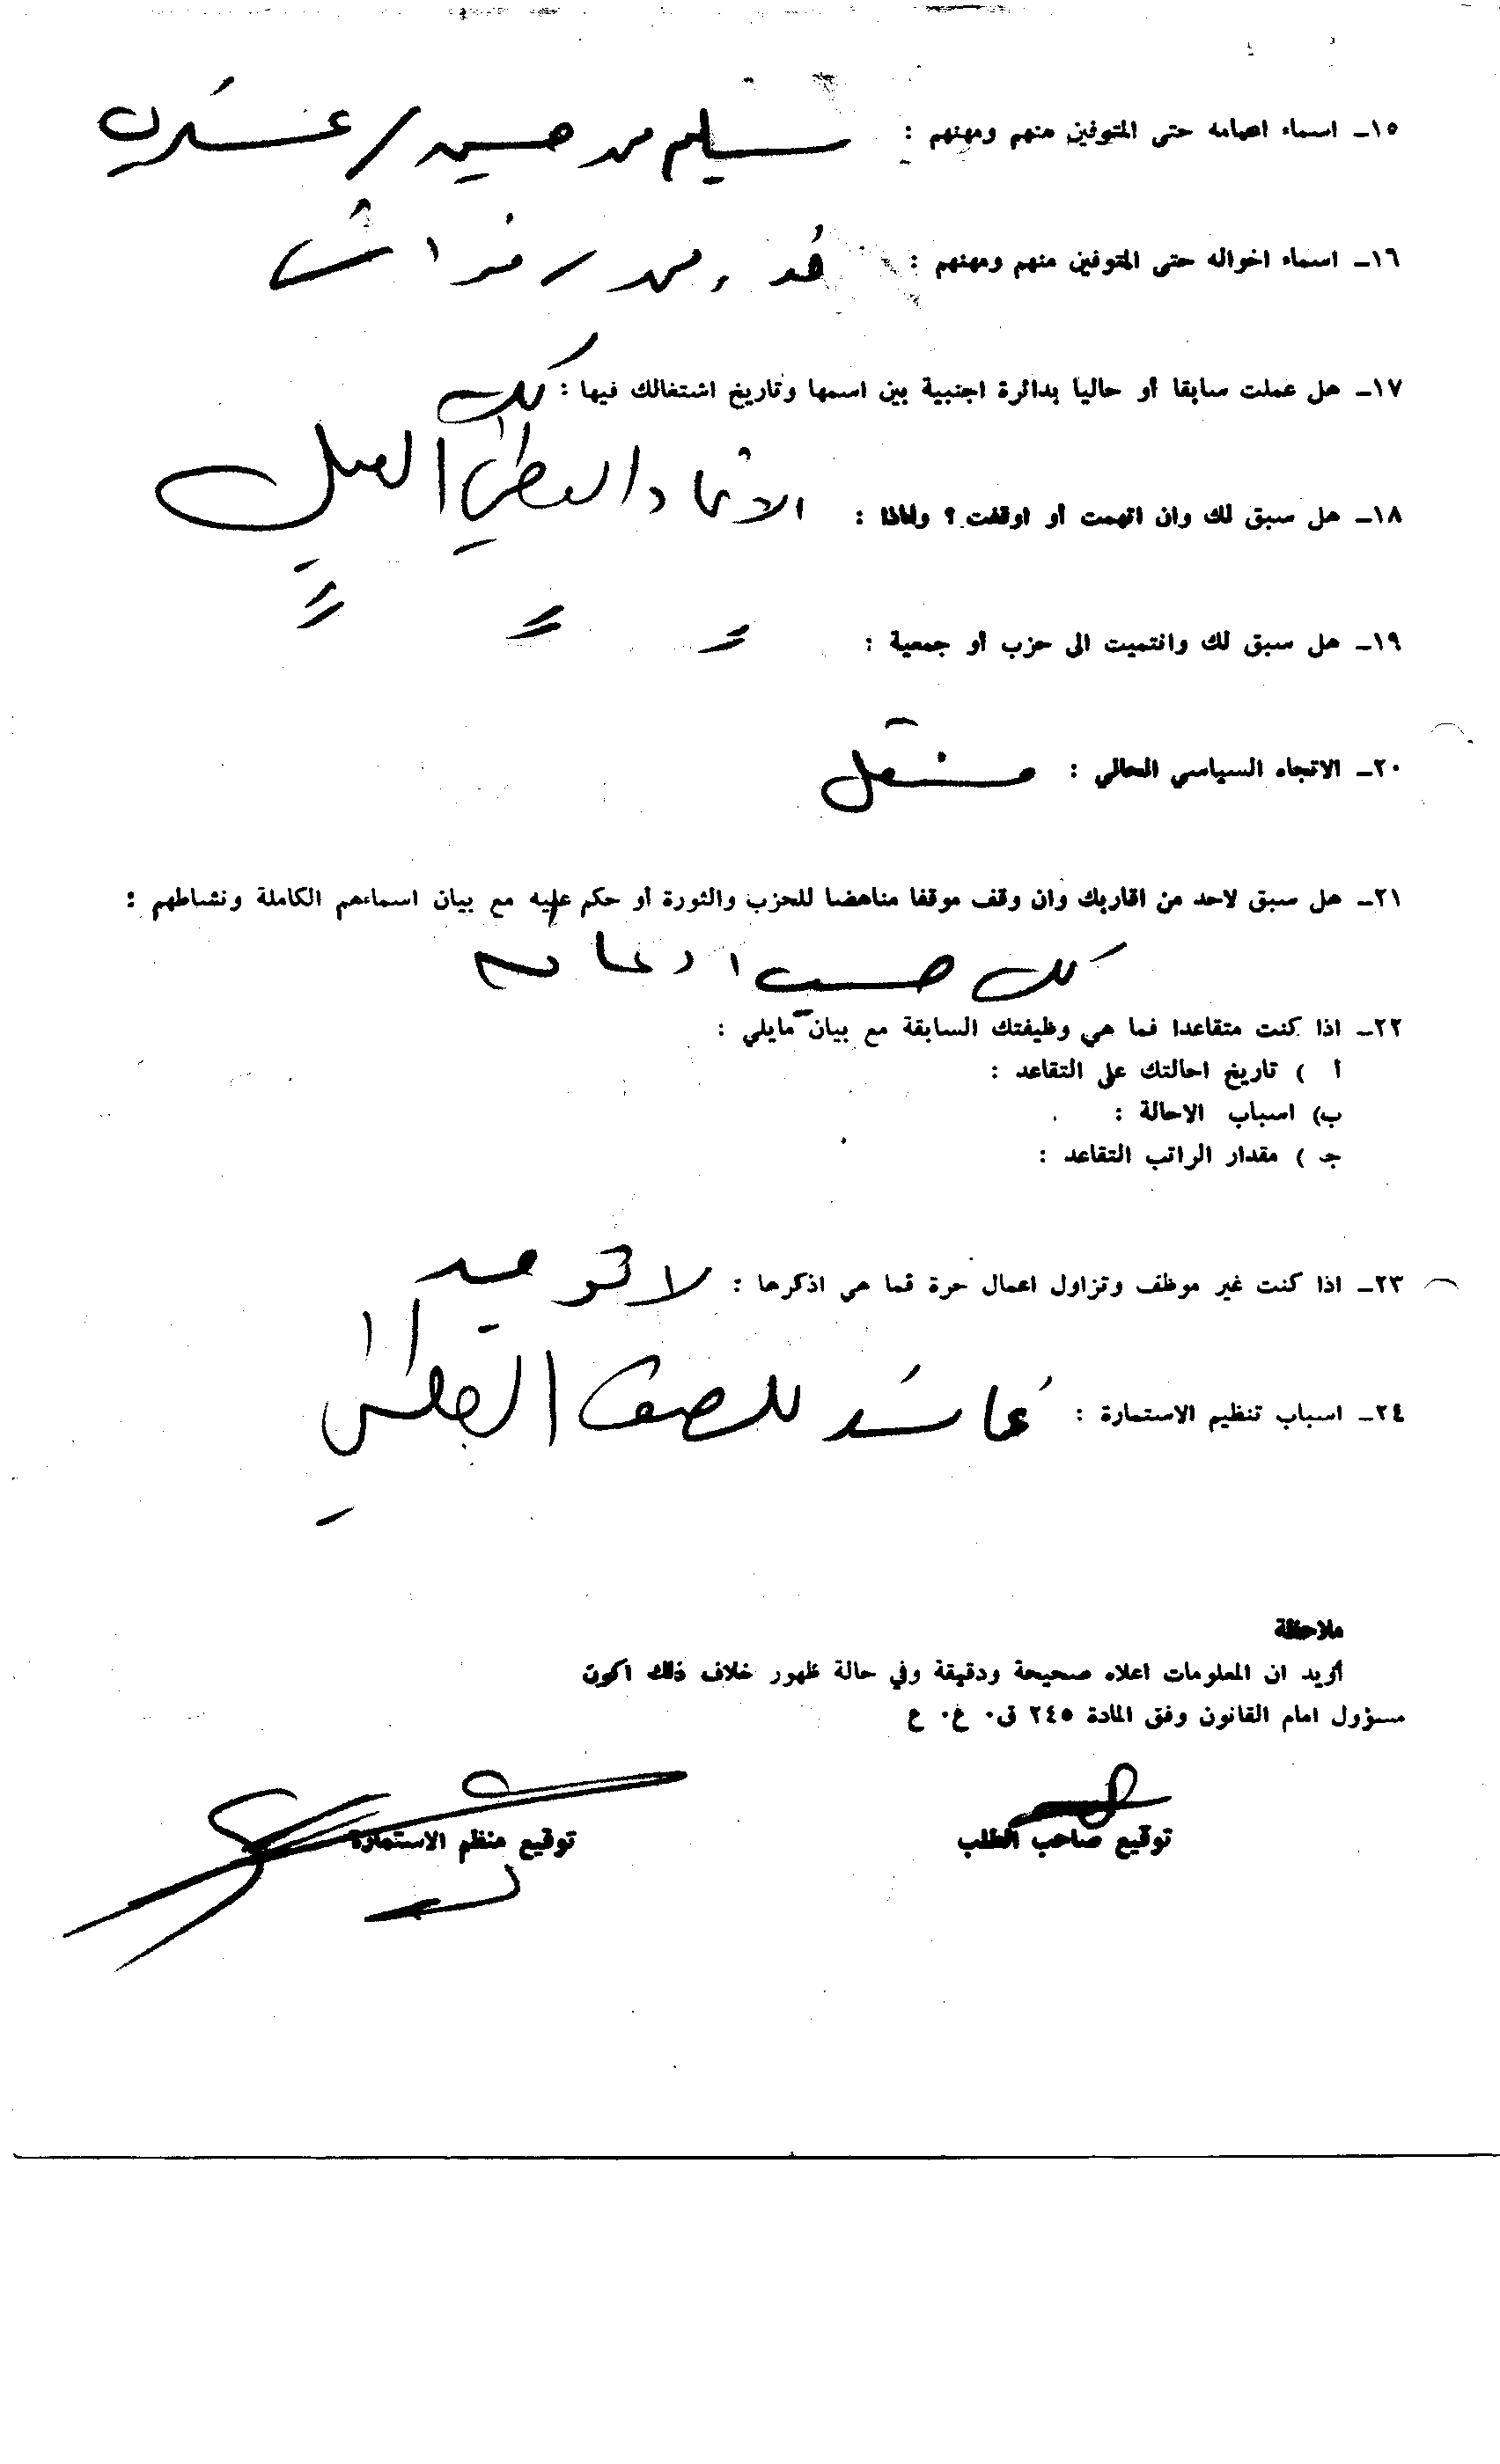 ١٥ـ اسماء اعمامه حتى المتوفين منهم ومهنهم : سليم حسين /
١٦ـ اسماء اخواله حتى المتوفين منهم ومهنهم :
١٧ـ هل عملت سابقا أو حاليا بدائرة اجنبية بين اسمها وتاريخ اشتغالك فيها : كلا
١٨ـ هل سبق لك وان اتهمت أو اوقفت ؟ ولماذا :
١٩ـ هل سبق لك وانتميت الى حزب أو جمعية :
٢٠ـ الاتجاه السياسي الحالي : مستقل
٢١ـ هل سبق لاحد من اقاربك وان وقف موقفا مناهضا للحزب والثورة أو حكم عليه مع بيان اسماءهم الكاملة ونشاطهم :
حسب ادعائه
٢٢ـ اذا كنت متقاعدا فما هي وظيفتك السابقة مع بيان مايلي :
أ ) تاريخ احالتك على التقاعد :
ب) اسباب الاحالة :
جـ ) مقدار الراتب التقاعد :
٢٣ـ اذا كنت غير موظف وتزاول اعمال حرة فما هي اذكرها : لا توجد
٢٤ـ اسباب تنظيم الاستمارة : للصف
ملاحظة
أؤيد ان المعلومات اعلاه صحيحة ودقيقة وفي حالة ظهور خلاف ذلك اكون
مسؤول امام القانون وفق المادة ٢٤٥ ق٠ غ٠ ع
توقيع صاحب الطلب توقيع منظم الاستمارة